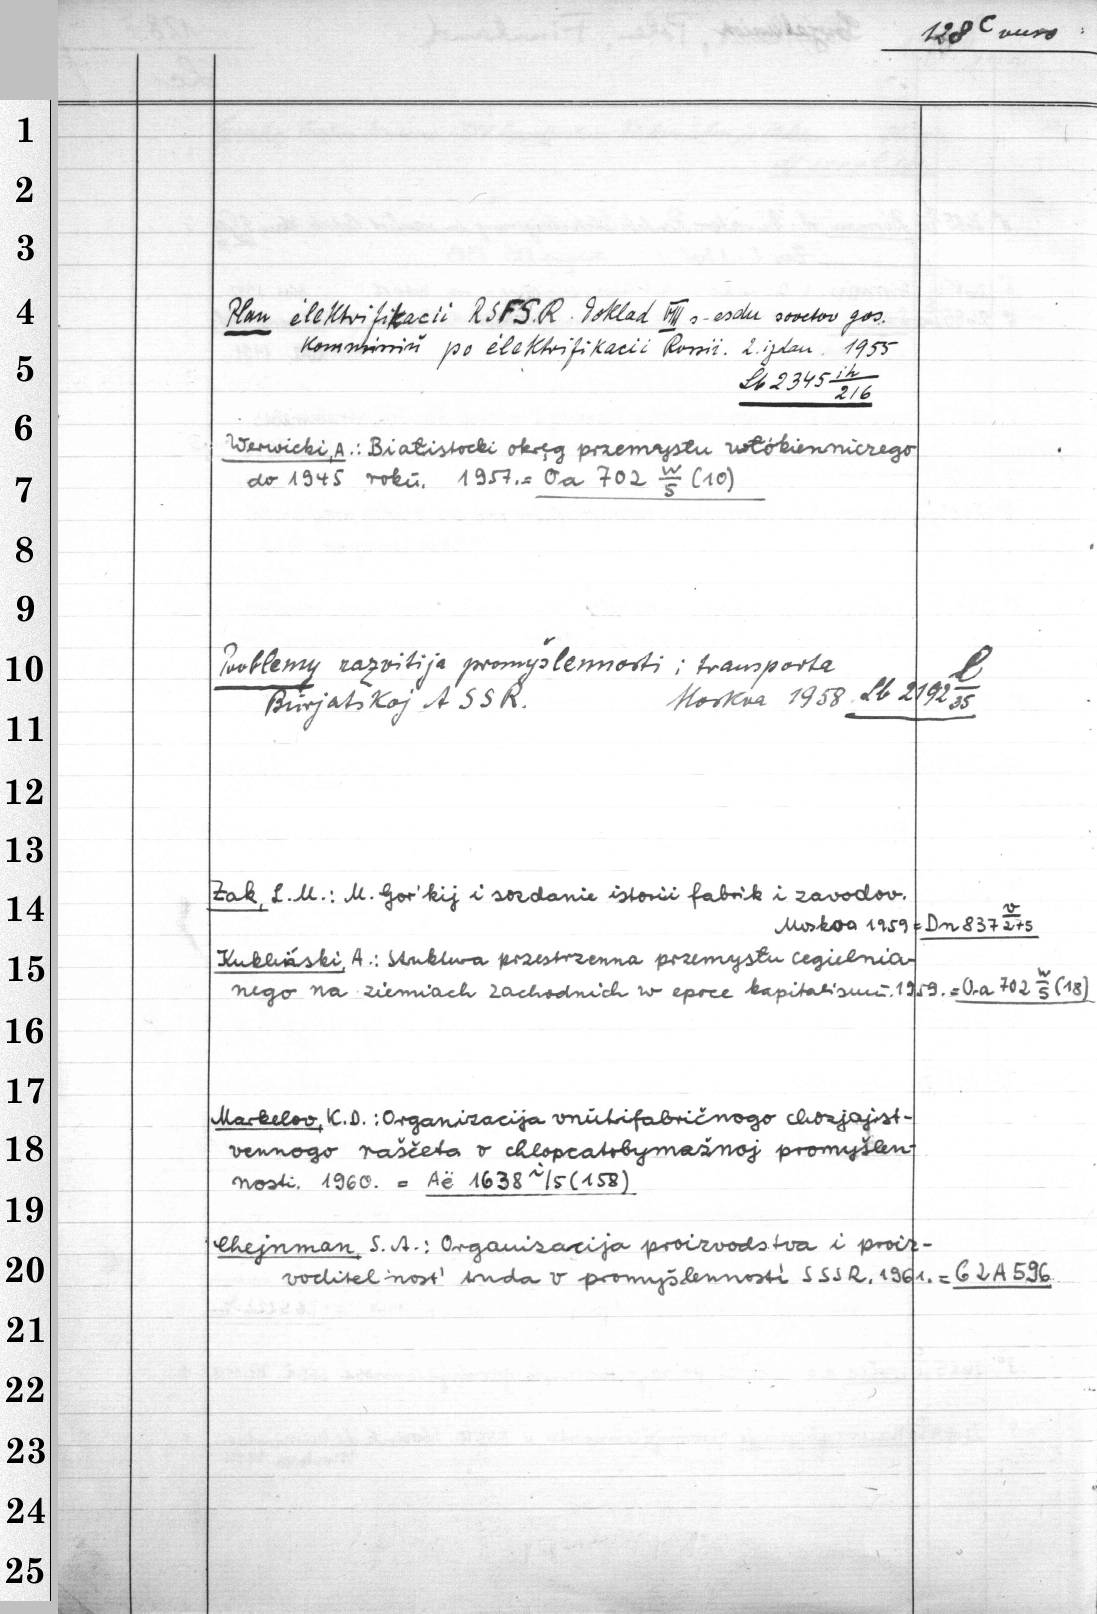 128 C verso
1
2
3
4
Plan élektrifikacii RSFSR. Doklad VIII s-esdu sovetov gos.
Kommissii po élektrifikacii Rossii. 2. izdan. 1955
5
Lb 2345 ih/216
6
Werwicki, A.: Białistocki okręg przemysłu włókienniczego
7
do 1945 rokū. 1957. = Oa 702 w/5 (10)
8
9
10
Problemy razvitija promyšlennosti i transporta
Burjatskoj ASSR. Moskva 1958. Lb 2192 l/35
11
12
13
14
Žak, L. M.: M. Gor'kij i sozdanie istorii fabrik i zavodov.
Moskva 1959 = Dn 837 v/275
15
Kukliński, A.: Struktura przestrzenna przemysłu cegielnia-
nego na ziemiach zachodnich w epoce kapitalismū. 1959. = Oa 702 w/5 (18)
16
17
Markelov, K. D.: Organizacija vnūtrifabričnogo chozjajst-
18
vennogo raščeta v chlopcatobymažnoj promyšlen-
nosti. 1960. = Aë 1638 i/5 (158)
19
Chejnman, S. A.: Organizacija proizvodstva i proiz-
20
voditel'nost' truda v promyšlennosti SSSR. 1961. = 62 A 596
21
22
23
24
25